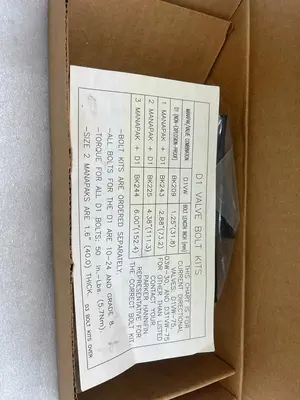 D1 VALVE BOLT KITS
MANAPAK/VALVE COMBINATION
D1 (NON-EXPLOSION-PROOF)
D1VW
BOLT LENGTH INCH (mm)
D1VW BK209 1.25"(31.8)
1 MANAPAK + D1 BK243 2.88"(73.2)
2 MANAPAK + D1 BK225 4.38"(111.3)
3 MANAPAK + D1 BK244 6.00"(152.4)
THIS CHART IS FOR
CURRENT DIRECTIONAL
VALVES: D1VW-75,
FOR OTHER THAN LISTED
CONTACT YOUR
PARKER HANNIFIN
REPRESENTATIVE FOR
THE CORRECT BOLT KIT.
-BOLT KITS ARE ORDERED SEPARATELY.
-ALL BOLTS FOR THE D1 ARE 10-24 AND GRADE 8.
-TORQUE FOR ALL D1 BOLTS: 50 in.-Lbs (5.7Nm).
-SIZE 2 MANAPAKS ARE 1.6" (40.0) THICK.
D3 BOLT KITS OVER